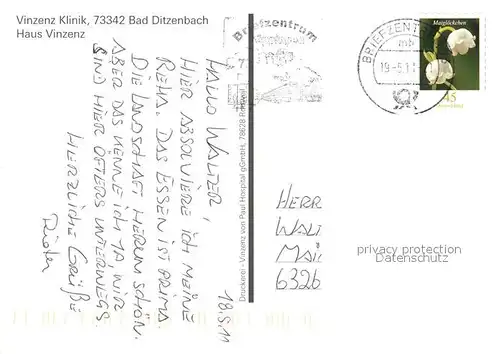 Vinzenz Klinik, 73342 Bad Ditzenbach
Haus Vinzenz
18.8.11
HALLO WALTER,
HIER ABSOLVIERE ICH MEINE
REHA. DAS ESSEN IST PRIMA
DIE LANDSCHAFT HERUM SCHÖN.
ABER DAS KENNE ICH JA, WIR
SIND HIER ÖFTERS UNTERWEGS
HERZLICHE GRÜßE
Druckerei - Vinzenz von Paul Hospital gGmbH, 78628 Rottweil
Briefzentrum
BRIEFZENTR
mb
Maiglöckchen
45
HERR
WAL
MAI
6326
privacy protection
Datenschutz